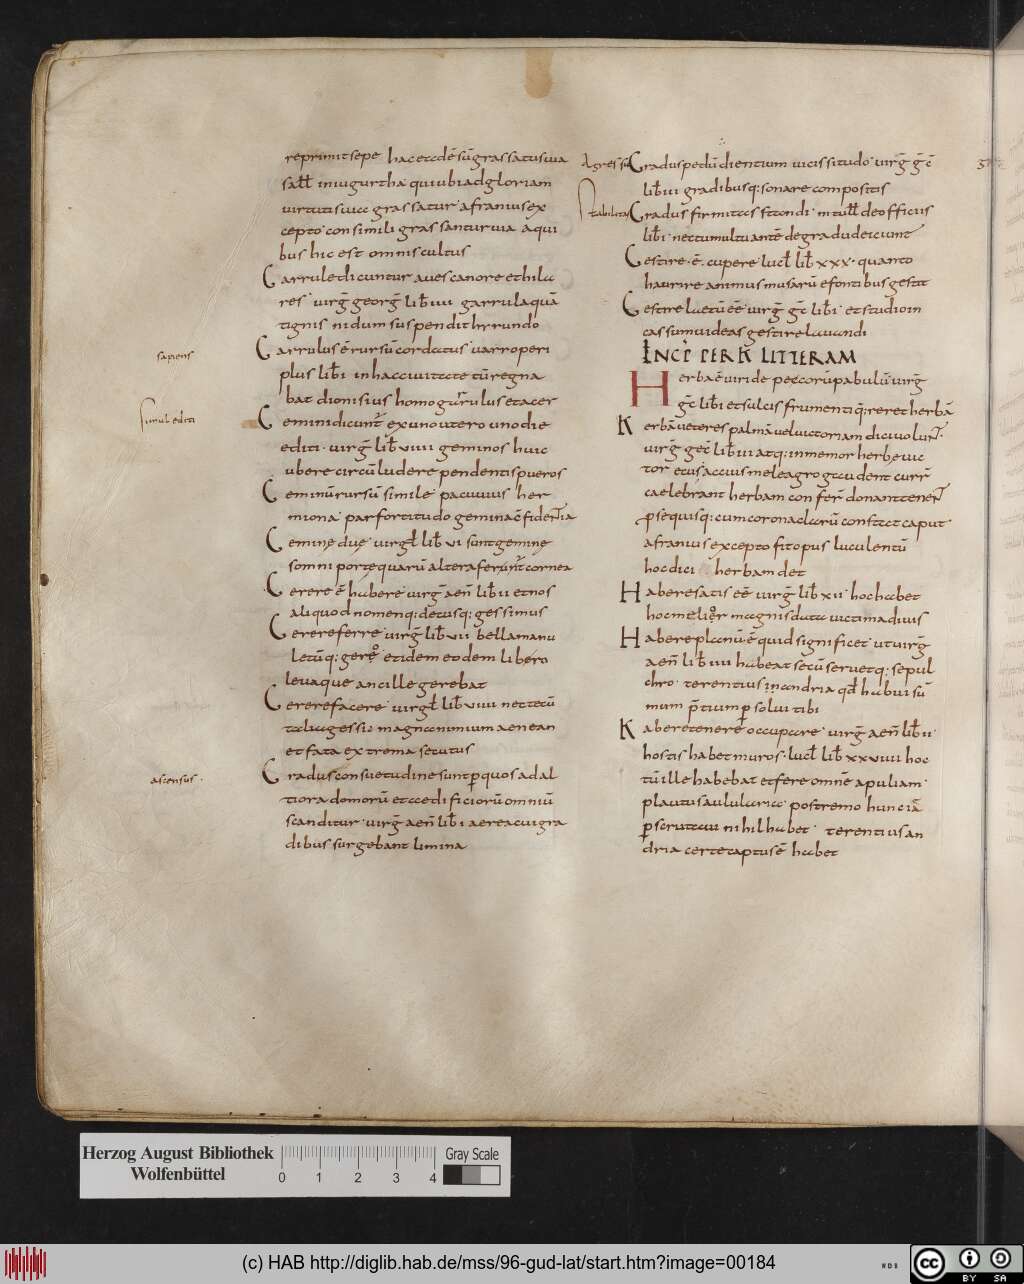 reprimit sepe hac etcdē sūgrassatus uia
sall̄ iniugurtha qui ubi ad gloriam
uirtutis uice grassatur afranius ex
cepto consimili grassantur uia a qui
bus hic est omnis cultus
Garrule dicuntur aues canore et hila
res uirḡ georḡ lib̄ iiii garrula quā
tignis nidum suspendit hirundo
Garrulus ē rursū cordatus uarro peri
plus lib̄ i in hac ciuitate tū regna
bat dionisius homo garrulus et acer
sapiens
Gemini dicunt̄ ex uno utero uno die
simul editi
editi uirḡ lib̄ viiii geminos huic
ubere circū ludere pendentis pueros
Geminū rursū simile pacuuius her
miona par fortitudo gemina ē fidentia
Gemine due uirgl̄ lib̄ vi sunt gemine
somni porte quarū altera ferunt̄ cornea
Gerere ē habere uirḡ aen̄ lib̄ ii et nos
aliquod nomenq: decusq: gessimus
Gerere ferre uirḡ lib̄ vii bella manu
letūq: gerer̄ et idem eodem libero
leuaque ancille gerebat
Gerere facere uirgl̄ lib̄ viiii nec tecū
talia gessi magnanimum aenean
et fata extrema secutus
ascensus
Gradus consuetudine sunt p quos ad al
tiora domorū et aedificiorū omniū
scanditur uirḡ aen̄ lib̄ i aerea cui gra
dibus surgebant limina
Agressio
Gradus pedū dientium uicissitudo uirḡ ḡc̄
lib̄ iii gradibusq: sonare compositis
stabilitas
Gradus firmitas standi m tull̄ de officiis
lib̄ i nec tumultuantē de gradu deiciunt
Gestire ē cupere lucl̄ lib̄ xxx quanto
haurire animus musarū e fontibus gestit
Gestire laetū eē uirḡ ḡc̄ lib̄ i et studio in
cassum uideas gestire lauandi
INCP PER H LITTERAM
Herba ē uiride pecorū pabulū uirḡ
ḡc̄ lib̄ i et sulcis frumenti q:reret herbā
Herbā ueteres palmā uel uictoriam dici uolunt̄
uirḡ gec̄ lib̄ iii atq: inmemor herbe uic
tor ecus accius meleagro gaudent curr̄
caelebrant herbam confer̄ donant tenen̄t
pse quisq: cum corona clarū constat caput
afranius excepto fit opus luculentū
hoc dici herbam det
Habere satis eē uirḡ lib̄ xii hoc habet
hoc melior̄ magnis data uictima diuis
Habere planū ē quid significet ut uirḡ
aen̄ lib̄ iiii habeat secū seruetq: sepul
chro terentius in andria qd̄ habui sū
mum ptium p solui tibi
Habere tenere occupare uirḡ aen̄ lib̄ ii
hostis habet muros lucl̄ lib̄ xxviiii hoc
tū ille habebat et fere omnē apuliam
plautus aulularia postremo hunc iā
p scrutaui nihil habet terentius an
dria certe captus ē habet
Herzog August Bibliothek
Wolfenbüttel
0 1 2 3 4
Gray Scale
(c) HAB http://diglib.hab.de/mss/96-gud-lat/start.htm?image=00184
WDB
cc BY SA